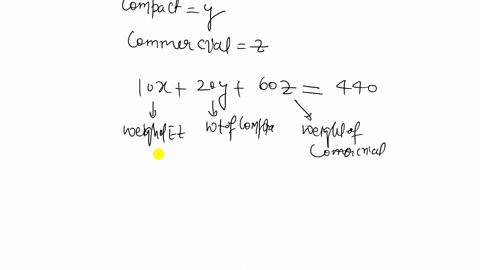 Compact = y
Commercval = z
10x + 20y + 60z = 440
weighof EZ wt of Compa weighl of
Comorcnial